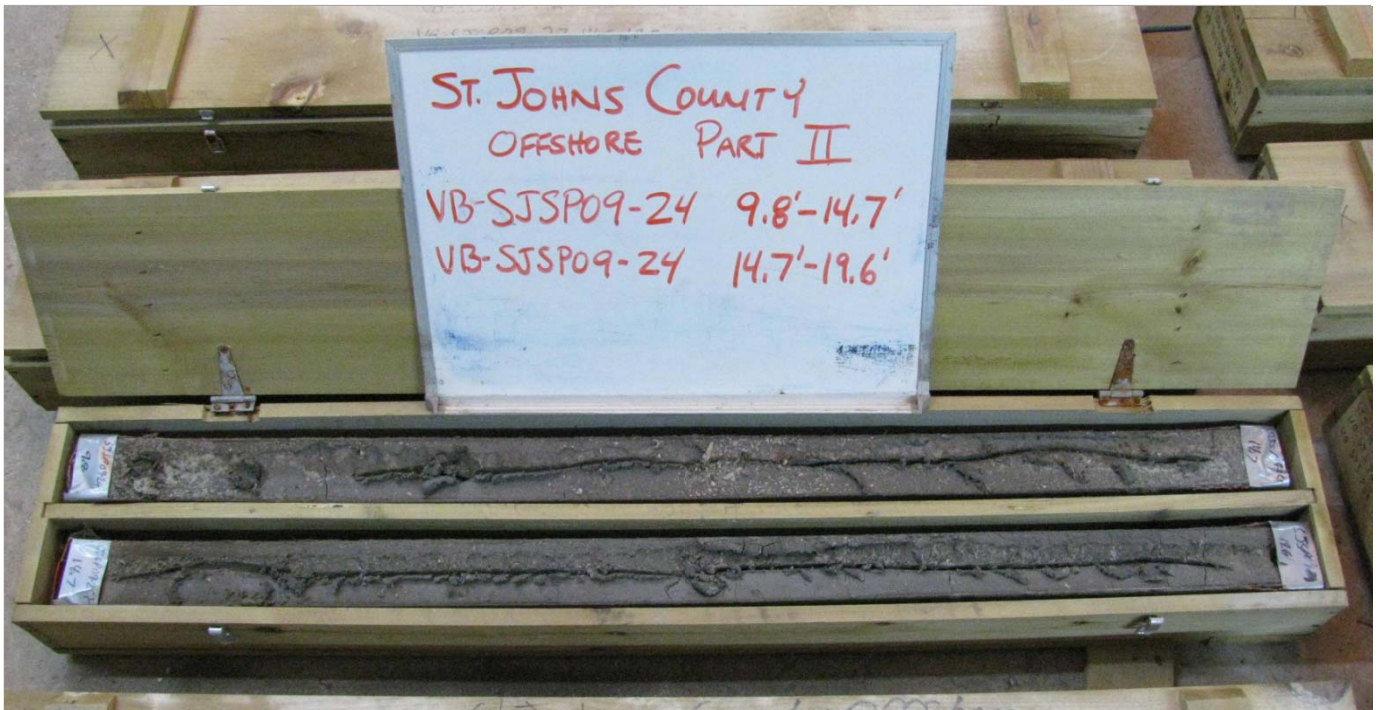 ST. JOHNS COUNTY
OFFSHORE PART II
VB-SJSP09-24 9.8'-14.7'
VB-SJSP09-24 14.7'-19.6'
9.8
14.7
14.7